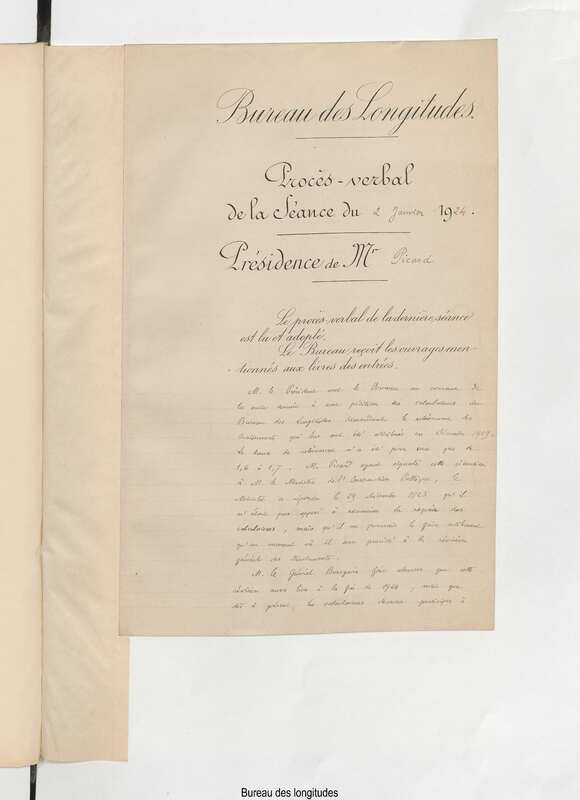 Bureau des Longitudes.
Procès-verbal
de la Séance du 2 Janvier 1924.
Présidence de Mr Picard
Le procès-verbal de la dernière séance
est lu et adopté.
Le Bureau reçoit les ouvrages men-
tionnés aux livres des entrées.
M. le Président met le Bureau au courant de
la suite donnée à une pétition des calculateurs du
Bureau des Longitudes demandant le relèvement des
traitements qui leur ont été attribués en Décembre 1919.
Le taux de relèvement n'a été pour eux que de
1,6 à 1,7. M. Picard ayant signalé cette situation
à M. le Ministre de l'Instruction Publique, le
Ministre a répondu le 29 Novembre 1923 qu'il
n'était pas opposé à examiner la requête des
calculateurs, mais qu'il ne pourrait le faire utilement
qu'au moment où il sera procédé à la révision
générale des traitements.
M. le Général Bourgeois fait observer que cette
révision aura lieu à la fin de 1924, mais que
dès à présent, les calculateurs devront participer à
Bureau des longitudes